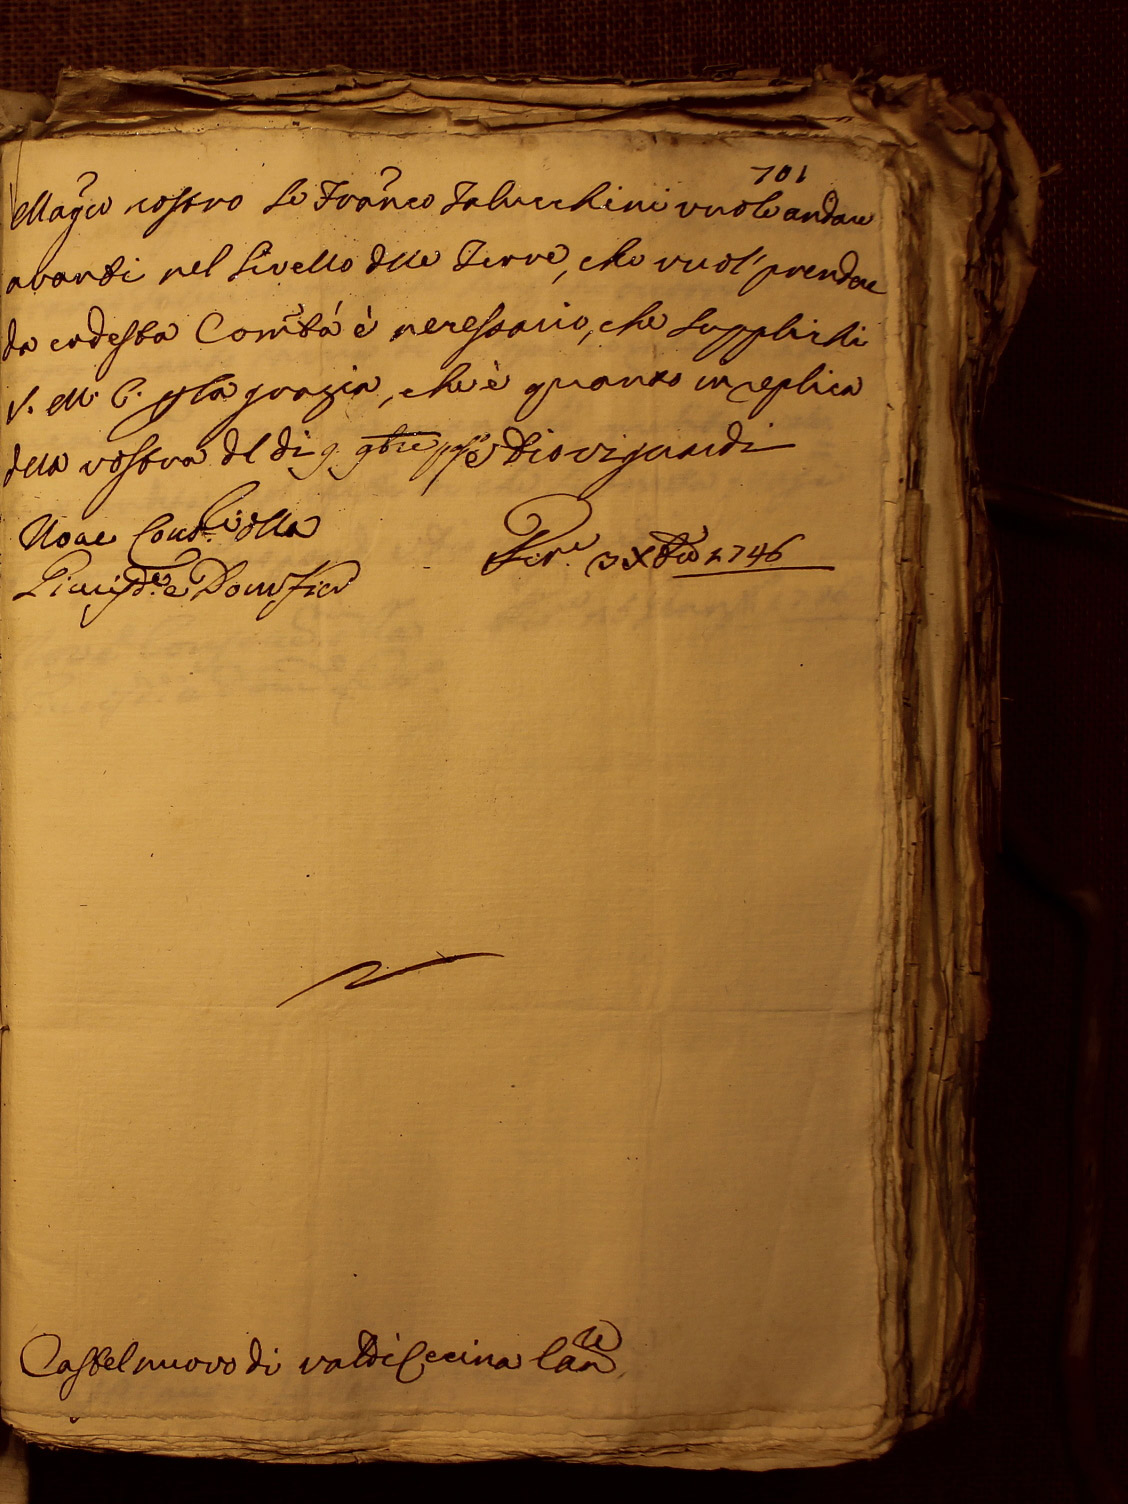 701
Mag.co nostro Se Fran.co Talucchini vuole andare
avanti nel Livello dlle Terre, che vuol' prendere
da codesta Com.tà è necessario, che supplichi
S. M. C. p la grazia, che è quanto in replica
della vostra dl di 9. 9bre pss.o e Dio vi guardi
Nove Cons.ri dlla
Giurisd.e e Dom.
Fir.e 3 Xbre 1746
Castelnuovo di val di Cecina Can.re